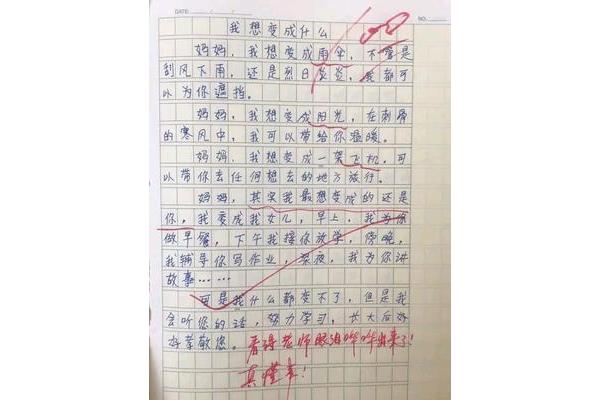 DATE:
NO.
我想变成什么
妈妈,我想变成雨伞,不管是
刮风下雨,还是烈日炎炎,我都可
以为你遮挡。
妈妈,我想变成阳光,在刺骨
的寒风中,我可以带给你温暖。
妈妈,我想变成一架飞机,可
以带你去任何想去的地方旅行。
妈妈,其实我最想变成的还是
你,我变成我女儿,早上,我为你
做早餐,下午我接你放学,傍晚,
我辅导你写作业,深夜,我为你讲
故事……
可是我什么都变不了,但是我
会听您的话,努力学习,长大后好
好孝敬您。看得老师眼泪哗哗出来了!
真懂事!